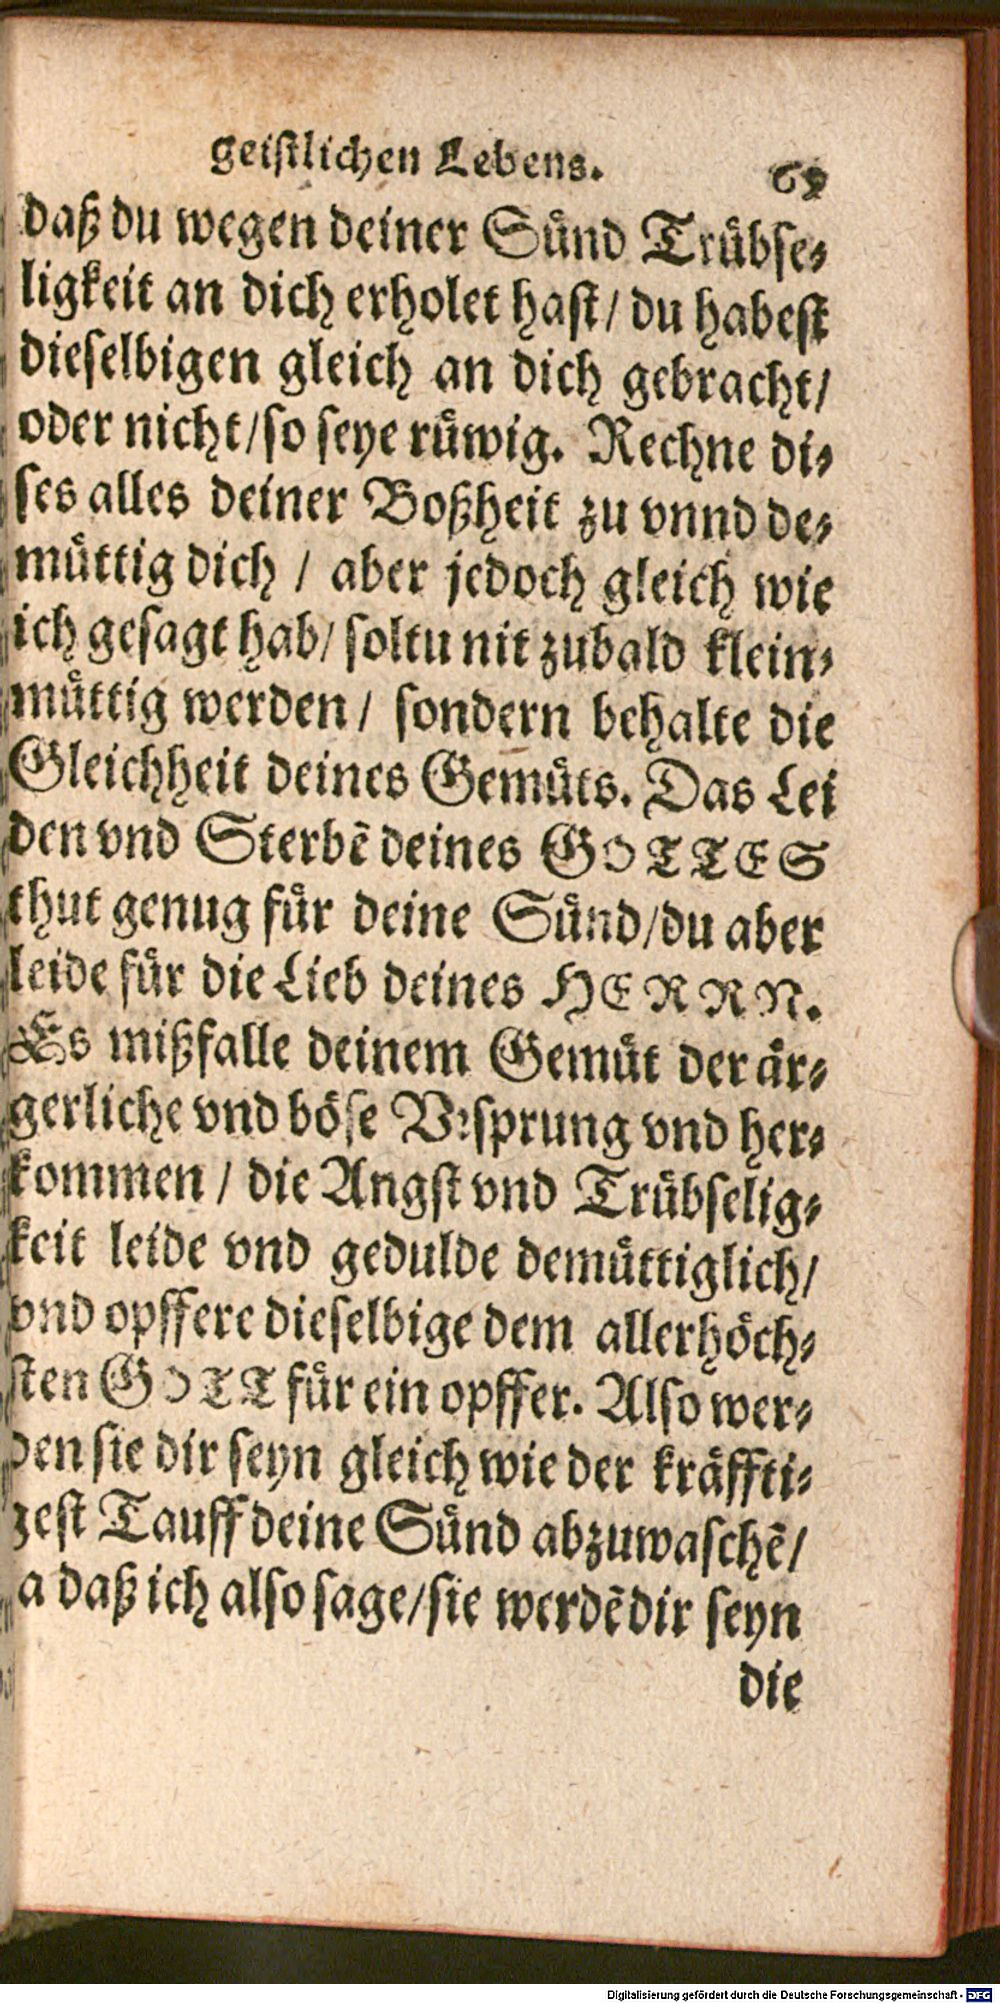 geistlichen Lebens. 69
daß du wegen deiner Sünd Trübse-
ligkeit an dich erholet hast/ du habest
dieselbigen gleich an dich gebracht/
oder nicht/ so seye rüwig. Rechne di-
ses alles deiner Boßheit zu vnnd de-
müttig dich / aber jedoch gleich wie
ich gesagt hab/ soltu nit zubald klein-
müttig werden / sondern behalte die
Gleichheit deines Gemüts. Das Lei
den vnd Sterbẽ deines GOTTES
thut genug für deine Sünd/ du aber
leide für die Lieb deines HERRN.
Es mißfalle deinem Gemüt der är-
gerliche vnd böse Vrsprung vnd her-
kommen / die Angst vnd Trübselig-
keit leide vnd gedulde demüttiglich/
vnd opffere dieselbige dem allerhöch-
sten GOTT für ein opffer. Also wer-
den sie dir seyn gleich wie der kräffti-
gest Tauff deine Sünd abzuwaschẽ/
a daß ich also sage/ sie werdẽ dir seyn
die
Digitalisierung gefördert durch die Deutsche Forschungsgemeinschaft - DFG